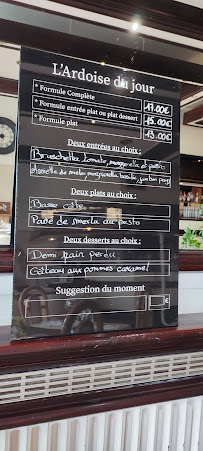 L'Ardoise du jour
* Formule Complète 17.00€
* Formule entrée plat ou plat dessert 15.00€
* Formule plat 13.00€
Deux entrées au choix :
Bruschetta tomate, mozzarella et pesto
de melon, mozzarella basilic, jambon pays
Deux plats au choix :
Basse côte
Pavé de merlu au pesto
Deux desserts au choix :
Demi pain perdu
Gâteau aux pommes caramel
Suggestion du moment